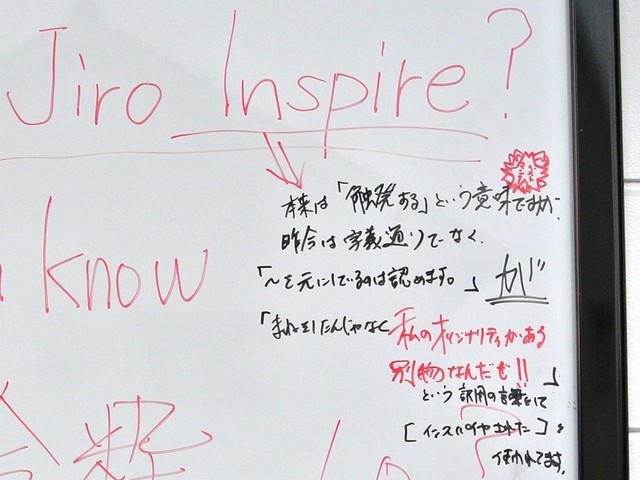 Jiro Inspire?
know
本来は「触発する」という意味ですが、
昨今は字義通りでなく、
「〜を元にしているのは認めます。」が
「まねをしたんじゃなく私のオリジナリティがある
別物なんだぜ!!」
という訳用の言葉として
[インスパイヤされた]を
使われてます。